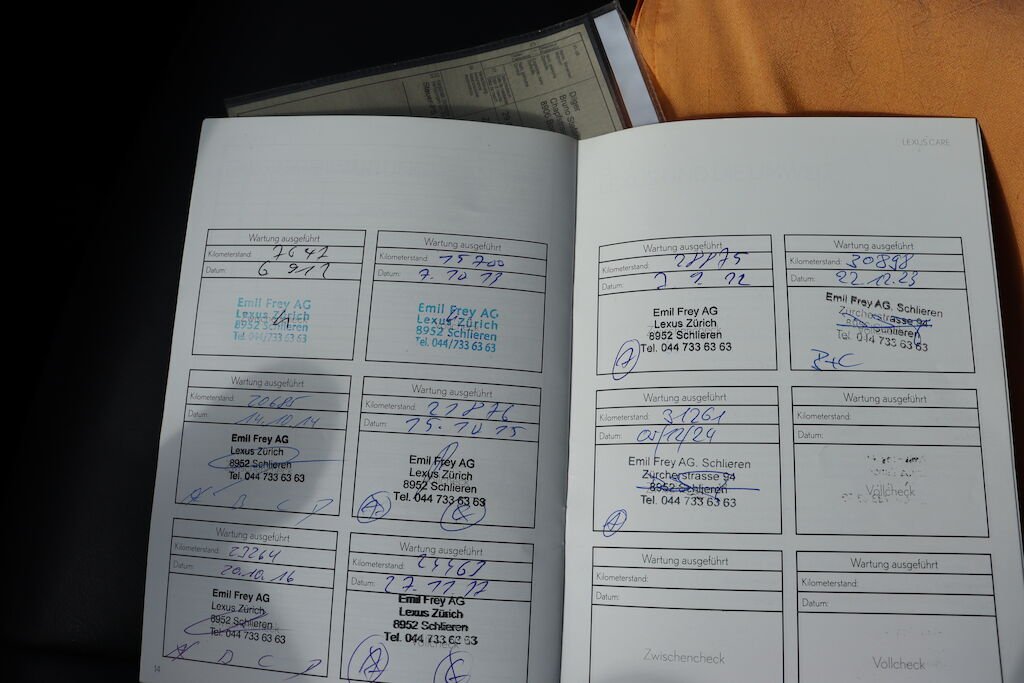 Dilger
Bruno
LEXUS CARE
Wartung ausgeführt
Kilometerstand: 7642
Datum: 6 9 12
Emil Frey AG
Lexus Zürich
8952 Schlieren
Tel. 044/733 63 63
Wartung ausgeführt
Kilometerstand: 15700
Datum: 7.10 13
Emil Frey AG
Lexus Zürich
8952 Schlieren
Tel. 044/733 63 63
Wartung ausgeführt
Kilometerstand: 20685
Datum: 14.10.14
Emil Frey AG
Lexus Zürich
8952 Schlieren
Tel. 044 733 63 63
A B C D
Wartung ausgeführt
Kilometerstand: 21876
Datum: 15.10 15
Emil Frey AG
Lexus Zürich
8952 Schlieren
Tel. 044 733 63 63
Wartung ausgeführt
Kilometerstand: 23264
Datum: 20.10.16
Emil Frey AG
Lexus Zürich
8952 Schlieren
Tel. 044 733 63 63
A B C D
Wartung ausgeführt
Kilometerstand: 24462
Datum: 27.11 17
Emil Frey AG
Lexus Zürich
8952 Schlieren
Tel. 044 733 63 63
14
Wartung ausgeführt
Kilometerstand: 28875
Datum:
Emil Frey AG
Lexus Zürich
8952 Schlieren
Tel. 044 733 63 63
Wartung ausgeführt
Kilometerstand: 30898
Datum: 22.12.23
Emil Frey AG. Schlieren
Zürcherstrasse 94
Tel. 044 733 63 63
B+C
Wartung ausgeführt
Kilometerstand: 31261
Datum: 05/12/24
Emil Frey AG. Schlieren
Zürcherstrasse 94
8952 Schlieren
Tel. 044 733 63 63
A
Wartung ausgeführt
Kilometerstand:
Datum:
Vollcheck
Wartung ausgeführt
Kilometerstand:
Datum:
Zwischencheck
Wartung ausgeführt
Kilometerstand:
Datum:
Vollcheck